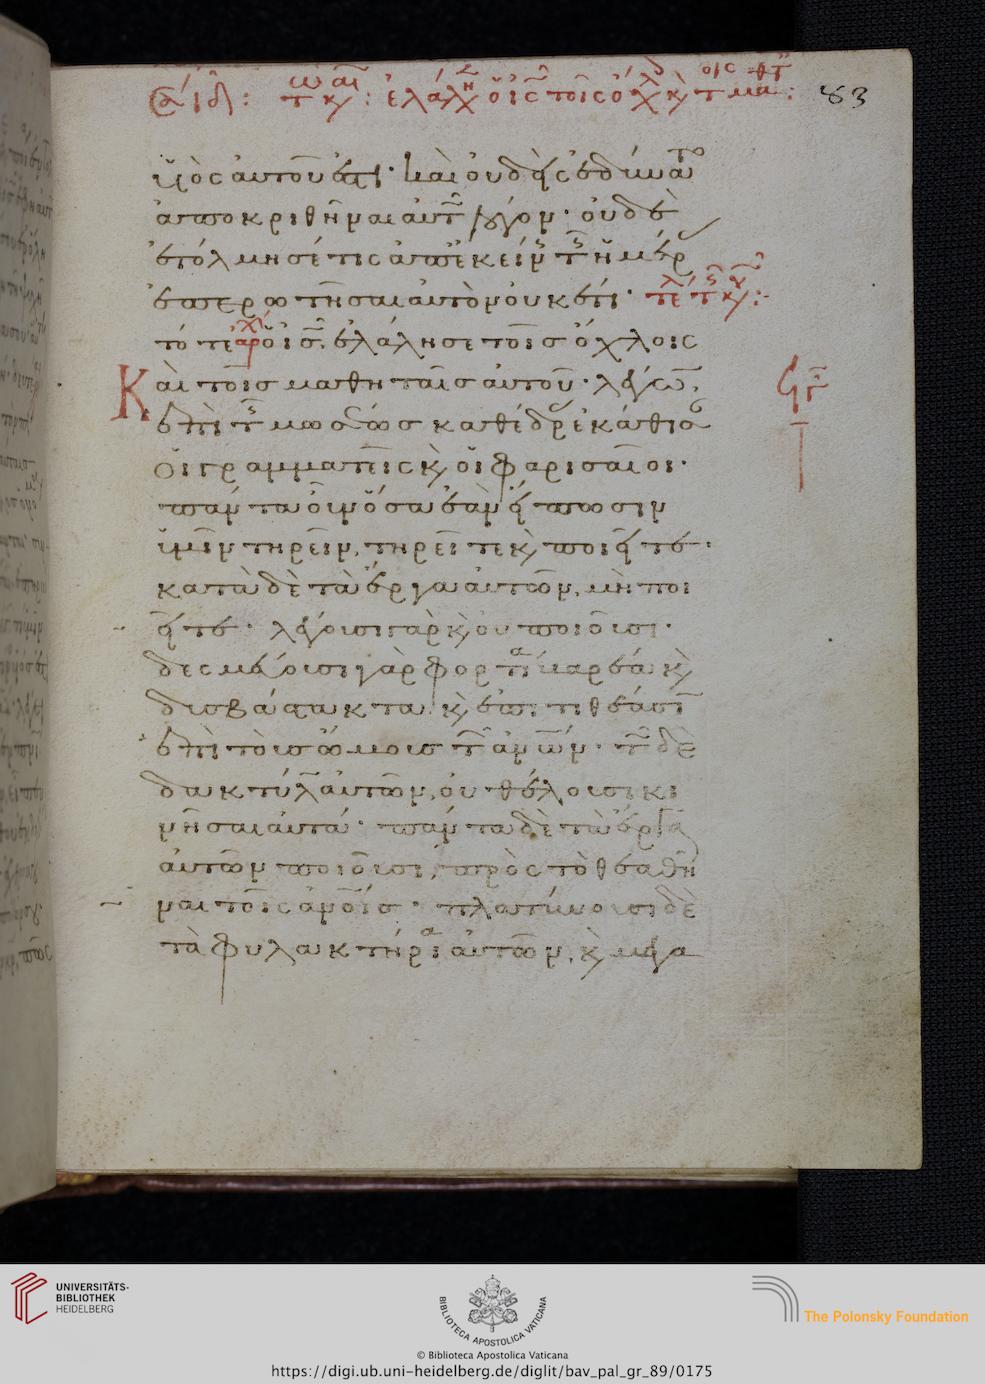 83
υἱὸς αὐτοῦ ἐστι· καὶ οὐδεὶς ἐδύνατο
ἀποκριθῆναι αὐτῷ λόγον· οὐδὲ
ἐτόλμησέ τις ἀπ' ἐκείνης τῆς ἡμέρας
ἐπερωτῆσαι αὐτὸν οὐκ ἔτι·
ἐλάλησε τοῖσ ὄχλοις
Καὶ τοῖσ μαθηταῖσ αὐτοῦ· λέγων,
ἐπὶ τῆς μωσέωσ καθέδρας ἐκάθισαν
οἱ γραμματεῖς κ οἱ φαρισαῖοι·
πάντα οὖν ὅσα ἐὰν εἴπωσιν
ὑμῖν τηρεῖν, τηρεῖτε κ ποιεῖτε·
κατὰ δὲ τὰ ἔργα αὐτῶν, μὴ ποι
εῖτε· λέγουσι γὰρ κ οὐ ποιοῦσι·
δεσμεύουσι γὰρ φορτία βαρέα κ
δυσβάστακτα. κ ἐπιτιθέασι
ἐπὶ τοὺσ ὤμουσ τῶν ἀνων· τῷ δὲ
δακτύλω αὐτῶν, οὐ θέλουσι κι
νῆσαι αὐτά· πάντα δὲ τὰ ἔργα
αὐτῶν ποιοῦσι, πρὸς τὸ θεαθῆ
ναι τοῖς ἀνοισ· πλατύνουσι δὲ
τὰ φυλακτήρια αὐτῶν, κ μεγα
UNIVERSITÄTS-
BIBLIOTHEK
HEIDELBERG
BIBLIOTECA APOSTOLICA VATICANA
The Polonsky Foundation
© Biblioteca Apostolica Vaticana
https://digi.ub.uni-heidelberg.de/diglit/bav_pal_gr_89/0175